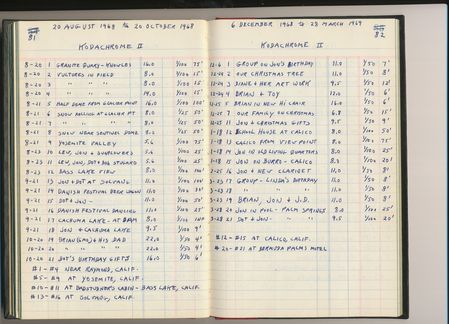 81
20 AUGUST 1968 to 20 OCTOBER 1968
KODACHROME II
8-20 1 GRANITE QUARY - KNOWLES 16.0 1/100 75'
8-20 2 VULTURES IN FIELD 8.0 1/100 15'
8-20 3 " " " 8.0 1/100 15'
8-20 4 " " " 1/100 25'
8-21 5 HALF DOME FROM GLACIER POINT 16.0 1/100 100'
8-21 6 SNOW MELTING AT GLACIER PT 8.0 1/25 50'
8-21 7 " " " " 8.0 1/25 50'
8-21 8 SNOW NEAR SENTINEL DOME 8.0 1/25 50'
8-21 9 YOSEMITE VALLEY 1/100 75'
8-23 10 LEW, JON + SUNFLOWERS 5.6 1/25
8-23 11 LEW, JON, DOT + BOB STUDARD 5.6 1/25 25'
8-23 12 BASS LAKE VIEW 8.0 1/100 100'
9-21 13 JON + DOT AT SOLVANG 11.0 1/100
9-21 14 DANISH FESTIVAL BEER WAGON 11.0 1/100
9-21 15 DOT + JON - 11.0 1/50
9-21 16 DANISH FESTIVAL DANCING 11.0 1/100 25'
9-21 17 LACHUMA LAKE - AT DAM 8.0 1/100 100'
9-21 18 JON + LACHUMA LAKE 9.5 1/100 9'
10-20 19 BRIAN (6MO) + HIS DAD 22.0 1/50 4'
10-20 20 " " " " 22.0 1/50 4'
10-20 21 DOT'S BIRTHDAY GIFTS 16.0 1/50 6'
#1 - #4 NEAR RAYMOND, CALIF.
#5 - #9 AT YOSEMITE, CALIF.
#10 - #11 AT BOB STUDNER'S CABIN - BASS LAKE, CALIF.
#13 - #16 AT SOLVANG, CALIF.
82
6 DECEMBER 1968 to 28 MARCH 1969
KODACHROME II
12-6 1 GROUP ON JON'S BIRTHDAY 11.0 1/50 7'
12-24 2 OUR CHRISTMAS TREE 11.0 1/50 8'
12-24 3 DIANE + HER ART WORK 9.5 1/50 12'
12-24 4 BRIAN + TOY 12.0 1/50 6'
12-25 5 BRIAN IN NEW HI CHAIR 16.0 1/50 6'
12-25 7 OUR FAMILY ON CHRISTMAS 6.8 1/50 15'
12-25 11 JON + CHRISTMAS GIFTS 9.5 1/50 9'
1-18 12 SCHOOL HOUSE AT CALICO 8.0 1/100 50'
1-18 13 CALICO FROM VIEW POINT 8.0 1/100 75'
1-18 14 JON IN OLD LIVING QUARTERS 8.0 1/100 25'
1-18 15 JON ON BURRO - CALICO 8.0 1/100 20'
1-26 16 JON + NEW CLARINET 11.0 1/50 8'
3-23 17 GROUP - LINDA'S BIRTHDAY 11.0 1/50 8'
3-23 18 " " " 11.0 1/50 8'
3-23 19 BRIAN, JON + J.D. 11.0 1/50 8'
3-28 20 JON IN POOL - PALM SPRINGS 8.0 1/100 25'
3-28 21 DOT + JON - " " 9.5 1/100 20'
#12 - #15 AT CALICO, CALIF.
#20 - #21 AT BERMUDA PALMS MOTEL